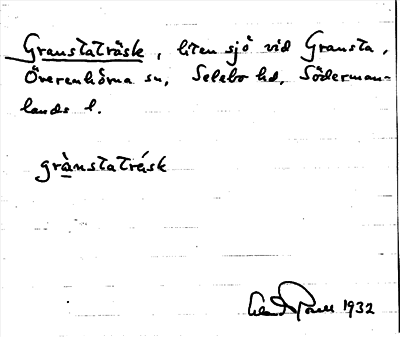 Granstaträsk, liten sjö vid Gransta,
Överenhörna sn, Selebo hd, Söderman-
lands l.
grànstatrásk
1932